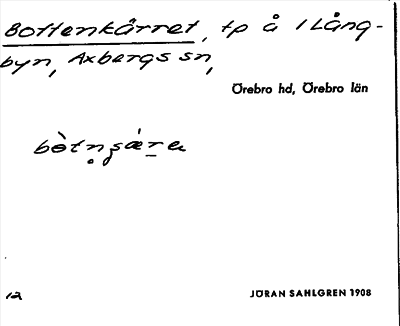 Bottenkärret, tp å 1 Lång-
byn, Axbergs sn,
Örebro hd, Örebro län
12
JÖRAN SAHLGREN 1908